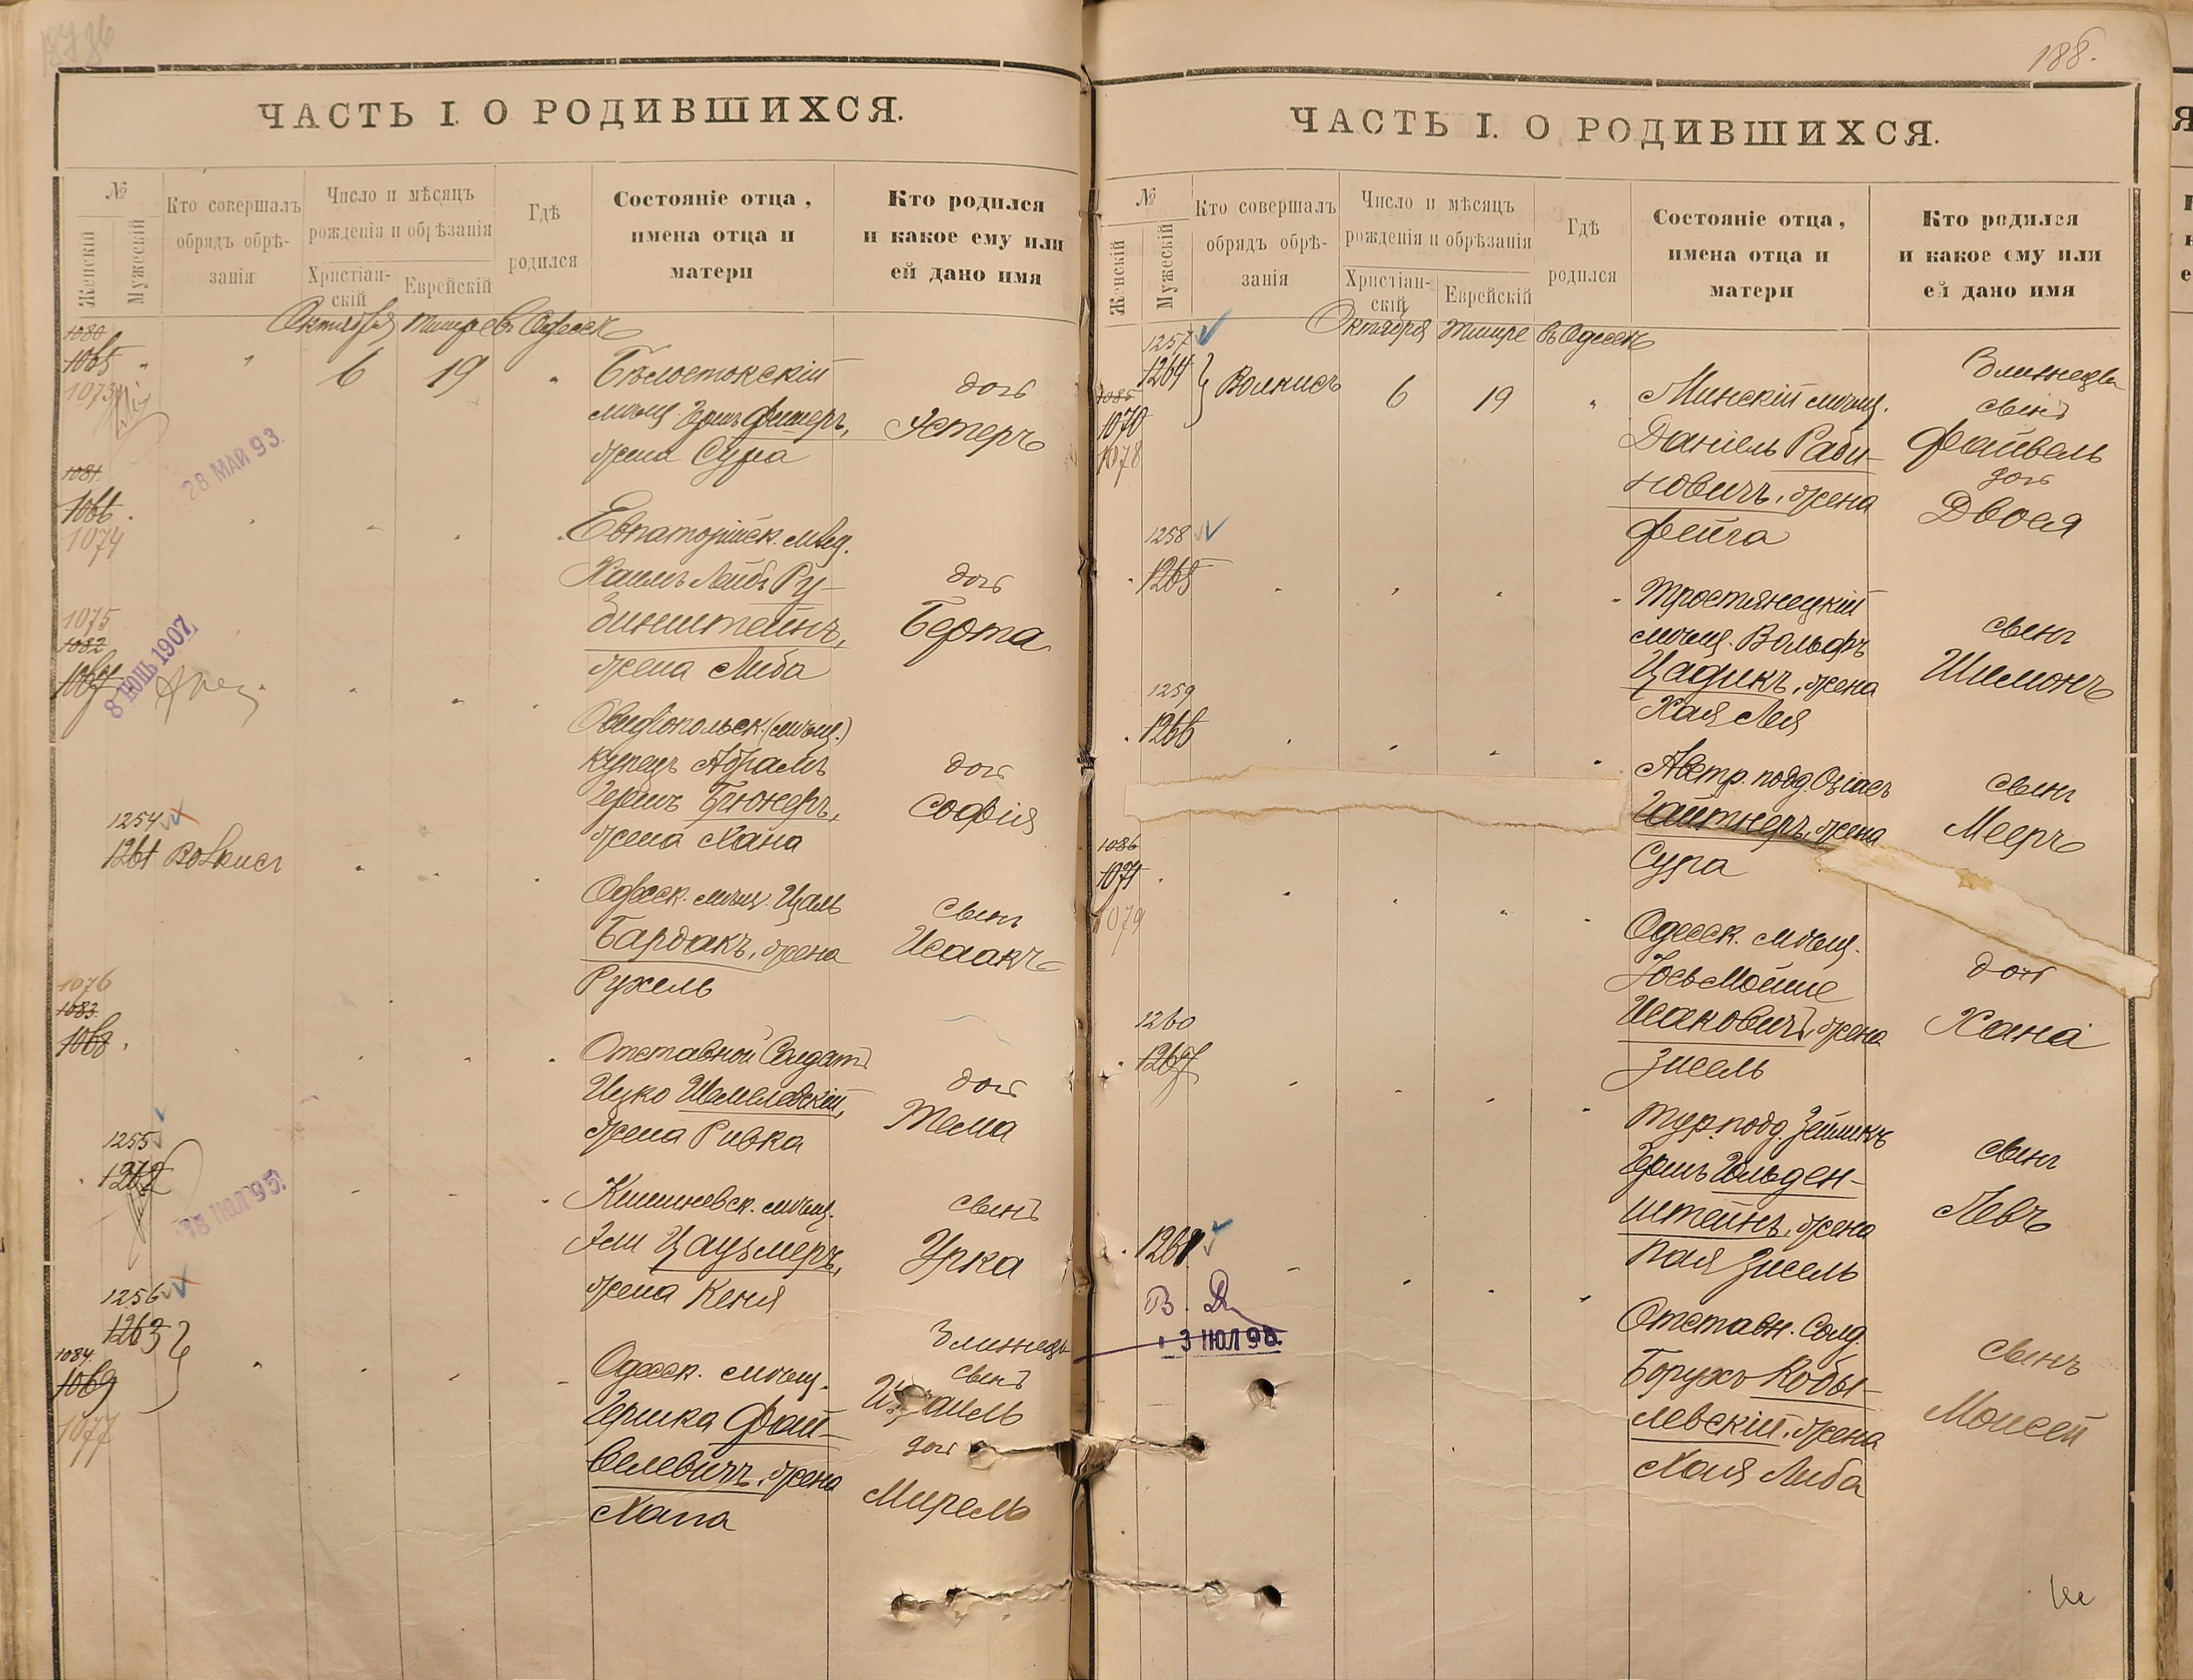 ЧАСТЬ I. О РОДИВШИХСЯ.
№
Женскій
Мужескій
Кто совершалъ обрядъ обрѣ-занія
Число и мѣсяцъ рожденія и обрѣзанія
Христіан-скій
Еврейскій
Гдѣ родился
Состояніе отца, имена отца и матери
Кто родился и какое ему или ей дано имя
Октября Тишре въ Одессѣ
1080
1065
1073
6 19
Бѣлостокскій
мѣщ. Гершъ Фишеръ,
жена Сура
дочь
Эстеръ
28 МАЙ 93.
1081.
1066
1074
Евпаторійск. мѣщ.
Хаимъ Лейбъ Ру-
бинштейнъ,
жена Либа
дочь
Берта
1075
1082
1067
8 ІЮНЬ 1907
Овидіопольск. (мѣщ.)
купецъ Абрамъ
Гершъ Бронеръ,
жена Хана
дочь
Софія
1254
1261 Волкисъ
Одесск. мѣщ. Цаль
Бардакъ, жена
Рухель
сынъ
Исаакъ
1076
1083.
1068
Отставной Солдатъ
Ицко Шемелевскій,
жена Ривка
дочь
Тема
1255
1262
18 ІЮЛ 95.
Кишиневск. мѣщ.
Эли Цауъмеръ,
жена Кеня
сынъ
Урка
1256
1263
1084.
1069
1077
Одесск. мѣщ.
Гершка Фай-
велевичъ, жена
Хана
Близнецы
сынъ
Израиль
дочь
Мирель
188.
ЧАСТЬ I. О РОДИВШИХСЯ.
№
Женскій
Мужескій
Кто совершалъ обрядъ обрѣ-занія
Число и мѣсяцъ рожденія и обрѣзанія
Христіан-скій
Еврейскій
Гдѣ родился
Состояніе отца, имена отца и матери
Кто родился и какое ему или ей дано имя
Октября Тишре въ Одессѣ
1257
1264
1085
1070
1078
Волкисъ 6 19
Минскій мѣщ.
Даніель Раби-
новичъ, жена
Фейга
Близнецы
сынъ
Файвель
дочь
Двося
1258
1265
Тростянецкій
мѣщ. Вольфъ
Цадикъ, жена
Хая Лея
сынъ
Шимонъ
1259
1266
Австр. подд. Озіасъ
Гайтнеръ, жена
Сура
сынъ
Мееръ
1086
1071
1079
Одесск. мѣщ.
Іось Мойше
Исаковичъ, жена
Зисель
дочь
Хана
1260
1267
Тур. подд. Зейликъ
Гершъ Гольден-
штейнъ, жена
Пая Зисель
сынъ
Левъ
1261
В. Д.
3 ІЮЛ 98.
Отставн. Солд.
Борухъ Кобы-
левскій, жена
Хая Либа
сынъ
Моисей